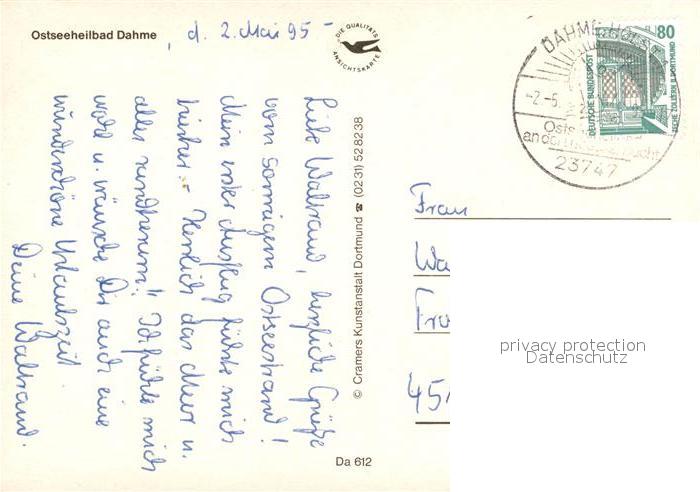 Ostseeheilbad Dahme
d. 2. Mai 95 -
DIE QUALITÄTS
ANSICHTSKARTE
Liebe Waltraud, herzliche Grüße
vom sonnigen Ostseestrand!
Mein erster Ausflug führte mich
hierher. Herrlich das Meer u.
alles rundherum!! Ich fühle mich
wohl u. wünsche Dir auch eine
wunderschöne Urlaubszeit.
Deine Waltraud.
© Cramers Kunstanstalt Dortmund ☎ (0231) 528238
Da 612
DAHME, HOLST
-2.-5.
Osts
an der
bucht
23747
80
DEUTSCHE BUNDESPOST
ZECHE ZOLLERN II, DORTMUND
Frau
Wa
Fra
45
privacy protection
Datenschutz